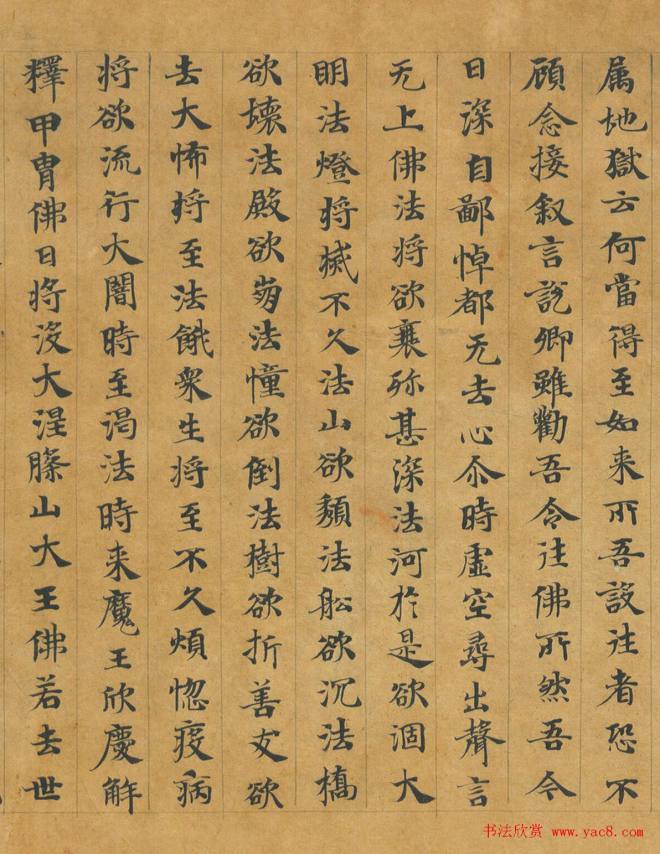 属地獄云何當得至如来所吾設往者恐不
顧念接叙言說卿雖勸吾令往佛所然吾今
日深自鄙悼都无去心尒時虛空尋出聲言
无上佛法将欲襄殄甚深法河於是欲涸大
明法燈将滅不久法山欲頽法舩欲沉法橋
欲壞法殿欲崩法幢欲倒法樹欲折善友欲
去大怖将至法餓衆生将至不久煩惚疫病
将欲流行大闇時至渴法時来魔王欣慶解
釋甲冑佛日将没大涅槃山大王佛若去世
书法欣赏 www.yac8.com